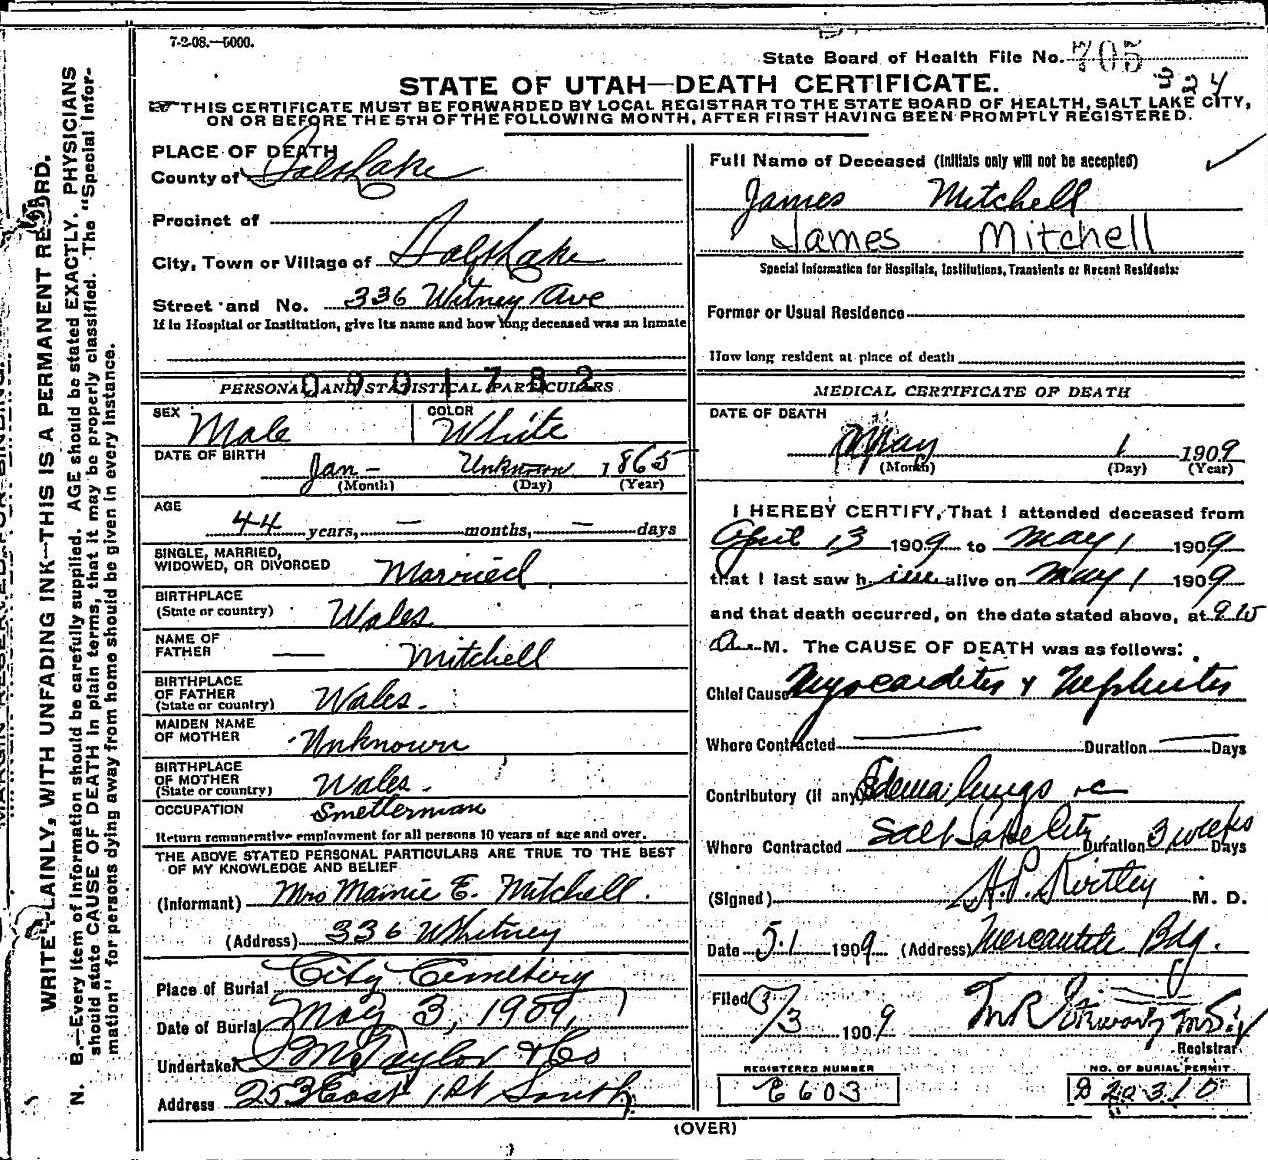 7-2-08.—5000.
State Board of Health File No. 705
324
STATE OF UTAH—DEATH CERTIFICATE.
THIS CERTIFICATE MUST BE FORWARDED BY LOCAL REGISTRAR TO THE STATE BOARD OF HEALTH, SALT LAKE CITY,
ON OR BEFORE THE 5TH OF THE FOLLOWING MONTH, AFTER FIRST HAVING BEEN PROMPTLY REGISTERED.
WRITE PLAINLY, WITH UNFADING INK—THIS IS A PERMANENT RECORD.
N. B.—Every item of information should be carefully supplied. AGE should be stated EXACTLY. PHYSICIANS
should state CAUSE OF DEATH in plain terms, that it may be properly classified. The "Special Infor-
mation" for persons dying away from home should be given in every instance.
PLACE OF DEATH
County of Salt Lake
Precinct of
City, Town or Village of Salt Lake
Street and No. 336 Witney Ave
If in Hospital or Institution, give its name and how long deceased was an inmate
0901782
PERSONAL AND STATISTICAL PARTICULARS
SEX Male COLOR White
DATE OF BIRTH Jan - Unknown 1865
(Month) (Day) (Year)
AGE
44 years, — months, — days
SINGLE, MARRIED,
WIDOWED, OR DIVORCED Married
BIRTHPLACE
(State or country) Wales
NAME OF
FATHER — Mitchell
BIRTHPLACE
OF FATHER
(State or country) Wales.
MAIDEN NAME
OF MOTHER Unknown
BIRTHPLACE
OF MOTHER
(State or country) Wales.
OCCUPATION Smelterman
Return remunerative employment for all persons 10 years of age and over.
THE ABOVE STATED PERSONAL PARTICULARS ARE TRUE TO THE BEST
OF MY KNOWLEDGE AND BELIEF
(Informant) Mrs Mamie E. Mitchell.
(Address) 336 Whitney
Place of Burial City Cemetery
Date of Burial May 3, 1909
Undertaker S M Taylor & Co
Address 253 East 1st South
Full Name of Deceased (Initials only will not be accepted)
James Mitchell
James Mitchell
Special Information for Hospitals, Institutions, Transients or Recent Residents:
Former or Usual Residence
How long resident at place of death
MEDICAL CERTIFICATE OF DEATH
DATE OF DEATH
May 1 1909
(Month) (Day) (Year)
I HEREBY CERTIFY, That I attended deceased from
April 13 1909 to May 1 1909
that I last saw him alive on May 1 1909
and that death occurred, on the date stated above, at 9.15
A. M. The CAUSE OF DEATH was as follows:
Chief Cause Myocarditis & Nephritis
Where Contracted — Duration — Days
Contributory (if any) Edema lungs &c
Where Contracted Salt Lake City Duration 3 weeks Days
(Signed) H.P. Kirtley M. D.
Date 5-1 1909 (Address) Mercantile Bdg.
Filed 5/3 1909
Registrar
REGISTERED NUMBER
E 603
NO. OF BURIAL PERMIT
D 20310
(OVER)